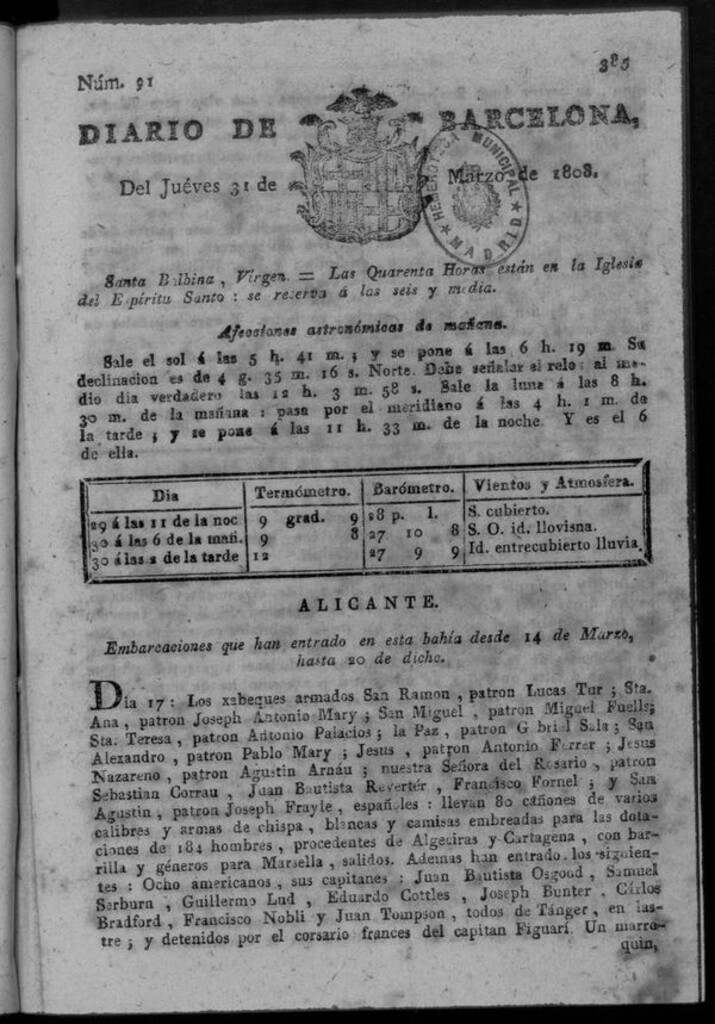 Núm. 91
385
DIARIO DE BARCELONA,
Del Juéves 31 de Marzo de 1808.
HEMEROTECA MUNICIPAL
★ MADRID ★
Santa Balbina, Vírgen. = Las Quarenta Horas están en la Iglesia
del Espíritu Santo : se reserva á las seis y media.
Afecciones astronómicas de mañana.
Sale el sol á las 5 h. 41 m. ; y se pone á las 6 h. 19 m. Su
declinacion es de 4 g. 35 m. 16 s. Norte. Debe señalar el relox al me-
dio dia verdadero las 12 h. 3 m. 58 s. Sale la luna á las 8 h.
30 m. de la mañana : pasa por el meridiano á las 4 h. 1 m. de
la tarde ; y se pone á las 11 h. 33 m. de la noche. Y es el 6
de ella.
Dia Termómetro. Barómetro. Vientos y Atmosfera.
29 á las 11 de la noc 9 grad. 9 28 p. l. S. cubierto.
30 á las 6 de la mañ. 9 8 27 10 8 S. O. id. llovisna.
30 á las 2 de la tarde 12 27 9 9 Id. entrecubierto lluvia.
ALICANTE.
Embarcaciones que han entrado en esta bahía desde 14 de Marzo,
hasta 20 de dicho.
Dia 17 : Los xabeques armados San Ramon, patron Lucas Tur ; Sta.
Ana, patron Joseph Antonio Mary ; San Miguel, patron Miguel Fuells;
Sta. Teresa, patron Antonio Palacios ; la Paz, patron Gabriel Sala ; San
Alexandro, patron Pablo Mary ; Jesus, patron Antonio Ferrer ; Jesus
Nazareno, patron Agustin Arnáu ; nuestra Señora del Rosario, patron
Sebastian Corrau, Juan Bautista Revertér, Francisco Fornel ; y San
Agustin, patron Joseph Frayle, españoles : llevan 80 cañones de varios
calibres y armas de chispa, blancas y camisas embreadas para las dota-
ciones de 184 hombres, procedentes de Algeciras y Cartagena, con bar-
rilla y géneros para Marsella, salidos. Ademas han entrado los siguien-
tes : Ocho americanos, sus capitanes : Juan Bautista Osgood, Samuel
Serburn, Guillermo Lud, Eduardo Cottles, Joseph Bunter, Cárlos
Bradford, Francisco Nobli y Juan Tompson, todos de Tánger, en las-
tre ; y detenidos por el corsario frances del capitan Figuarí. Un marro-
quin,